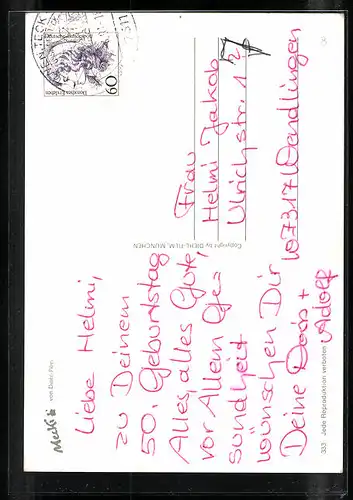 Mecki
von Diehl-Film
Liebe Helmi,
zu Deinem
50. Geburtstag
Alles alles Gute,
vor Allem Ge=
sundheit
wünschen Dir
Deine Doris +
Adolf
Copyright by DIEHL-FILM, MÜNCHEN
333 Jede Reproduktion verboten
60
TECK
Frau
Helmi Jakob
Ulrichstr. 12
7317 Wendlingen